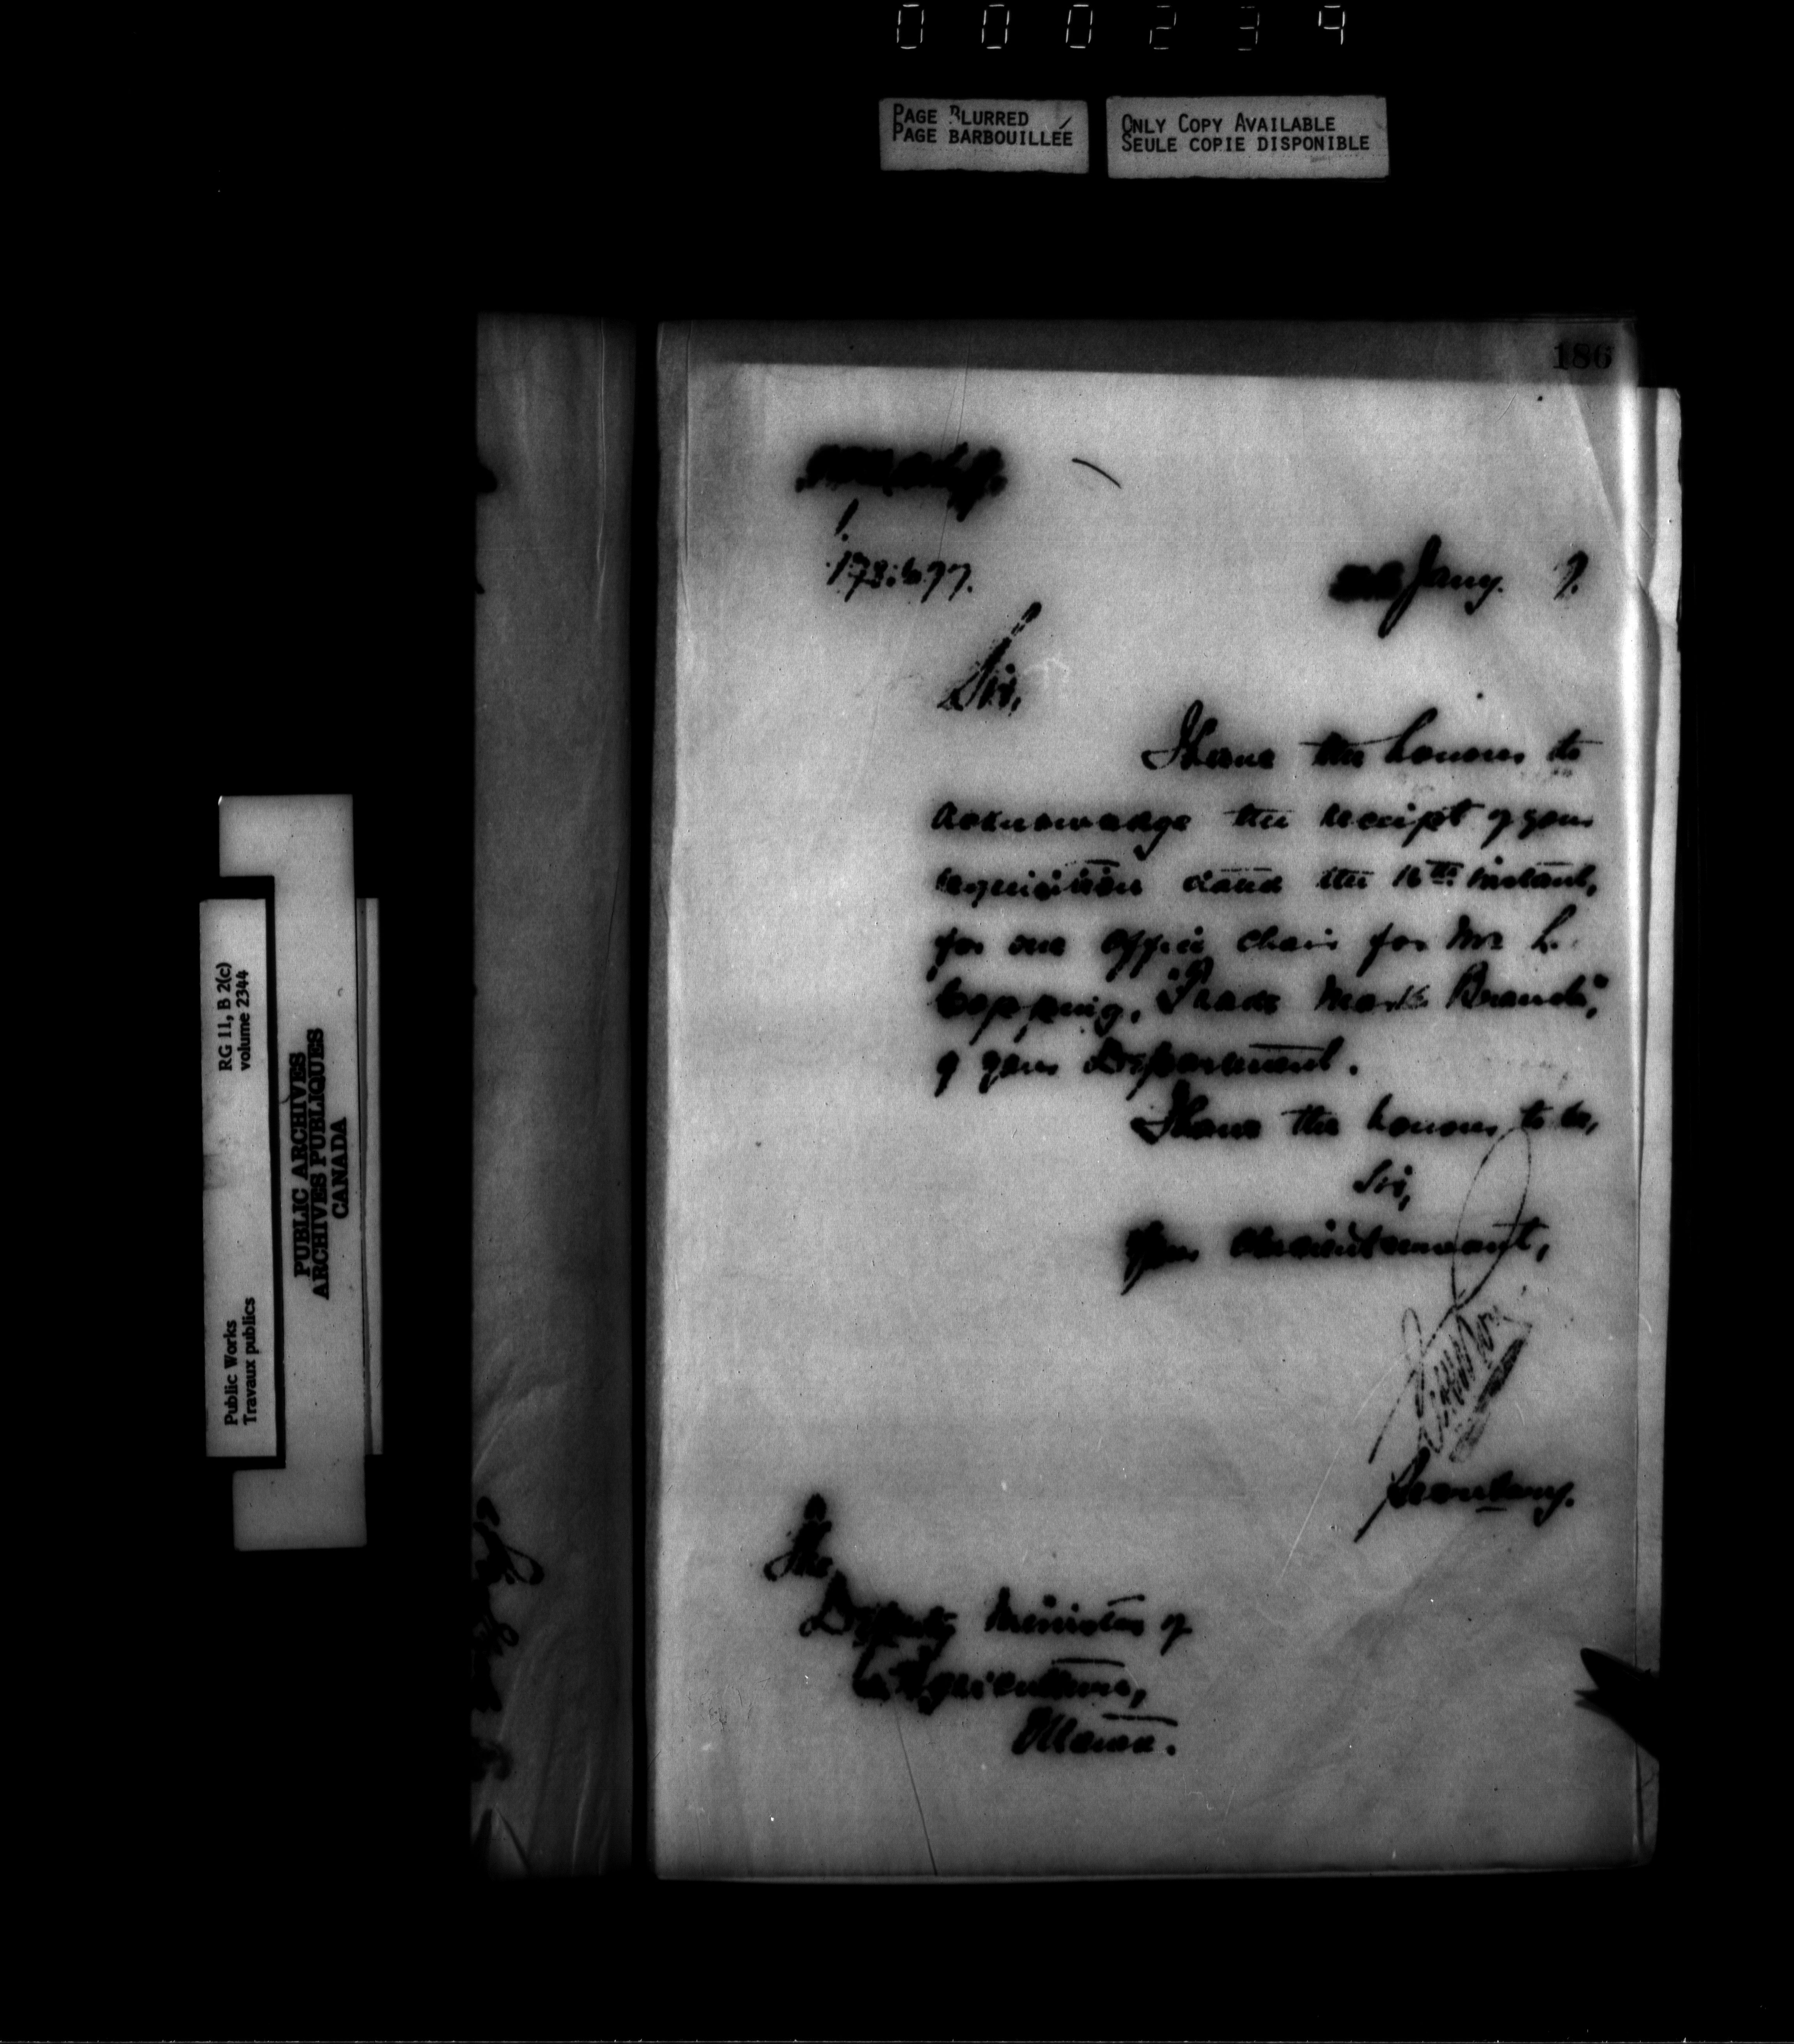 000234
PAGE BLURRED
PAGE BARBOUILLÉE
ONLY COPY AVAILABLE
SEULE COPIE DISPONIBLE
186
1.
Jany. 7.
Sir,
I have the honour to
acknowledge the receipt of your
requisition dated the 16th instant,
for one office chair for Mr L.
Copping, "Trade Mark Branch",
of your Department.
I have the honour to be,
Sir,
Your obedient servant,
Secretary.
The
Deputy Minister of
Agriculture,
Ottawa.
RG 11, B 2(c)
volume 2344
Public Works
Travaux publics
PUBLIC ARCHIVES
ARCHIVES PUBLIQUES
CANADA